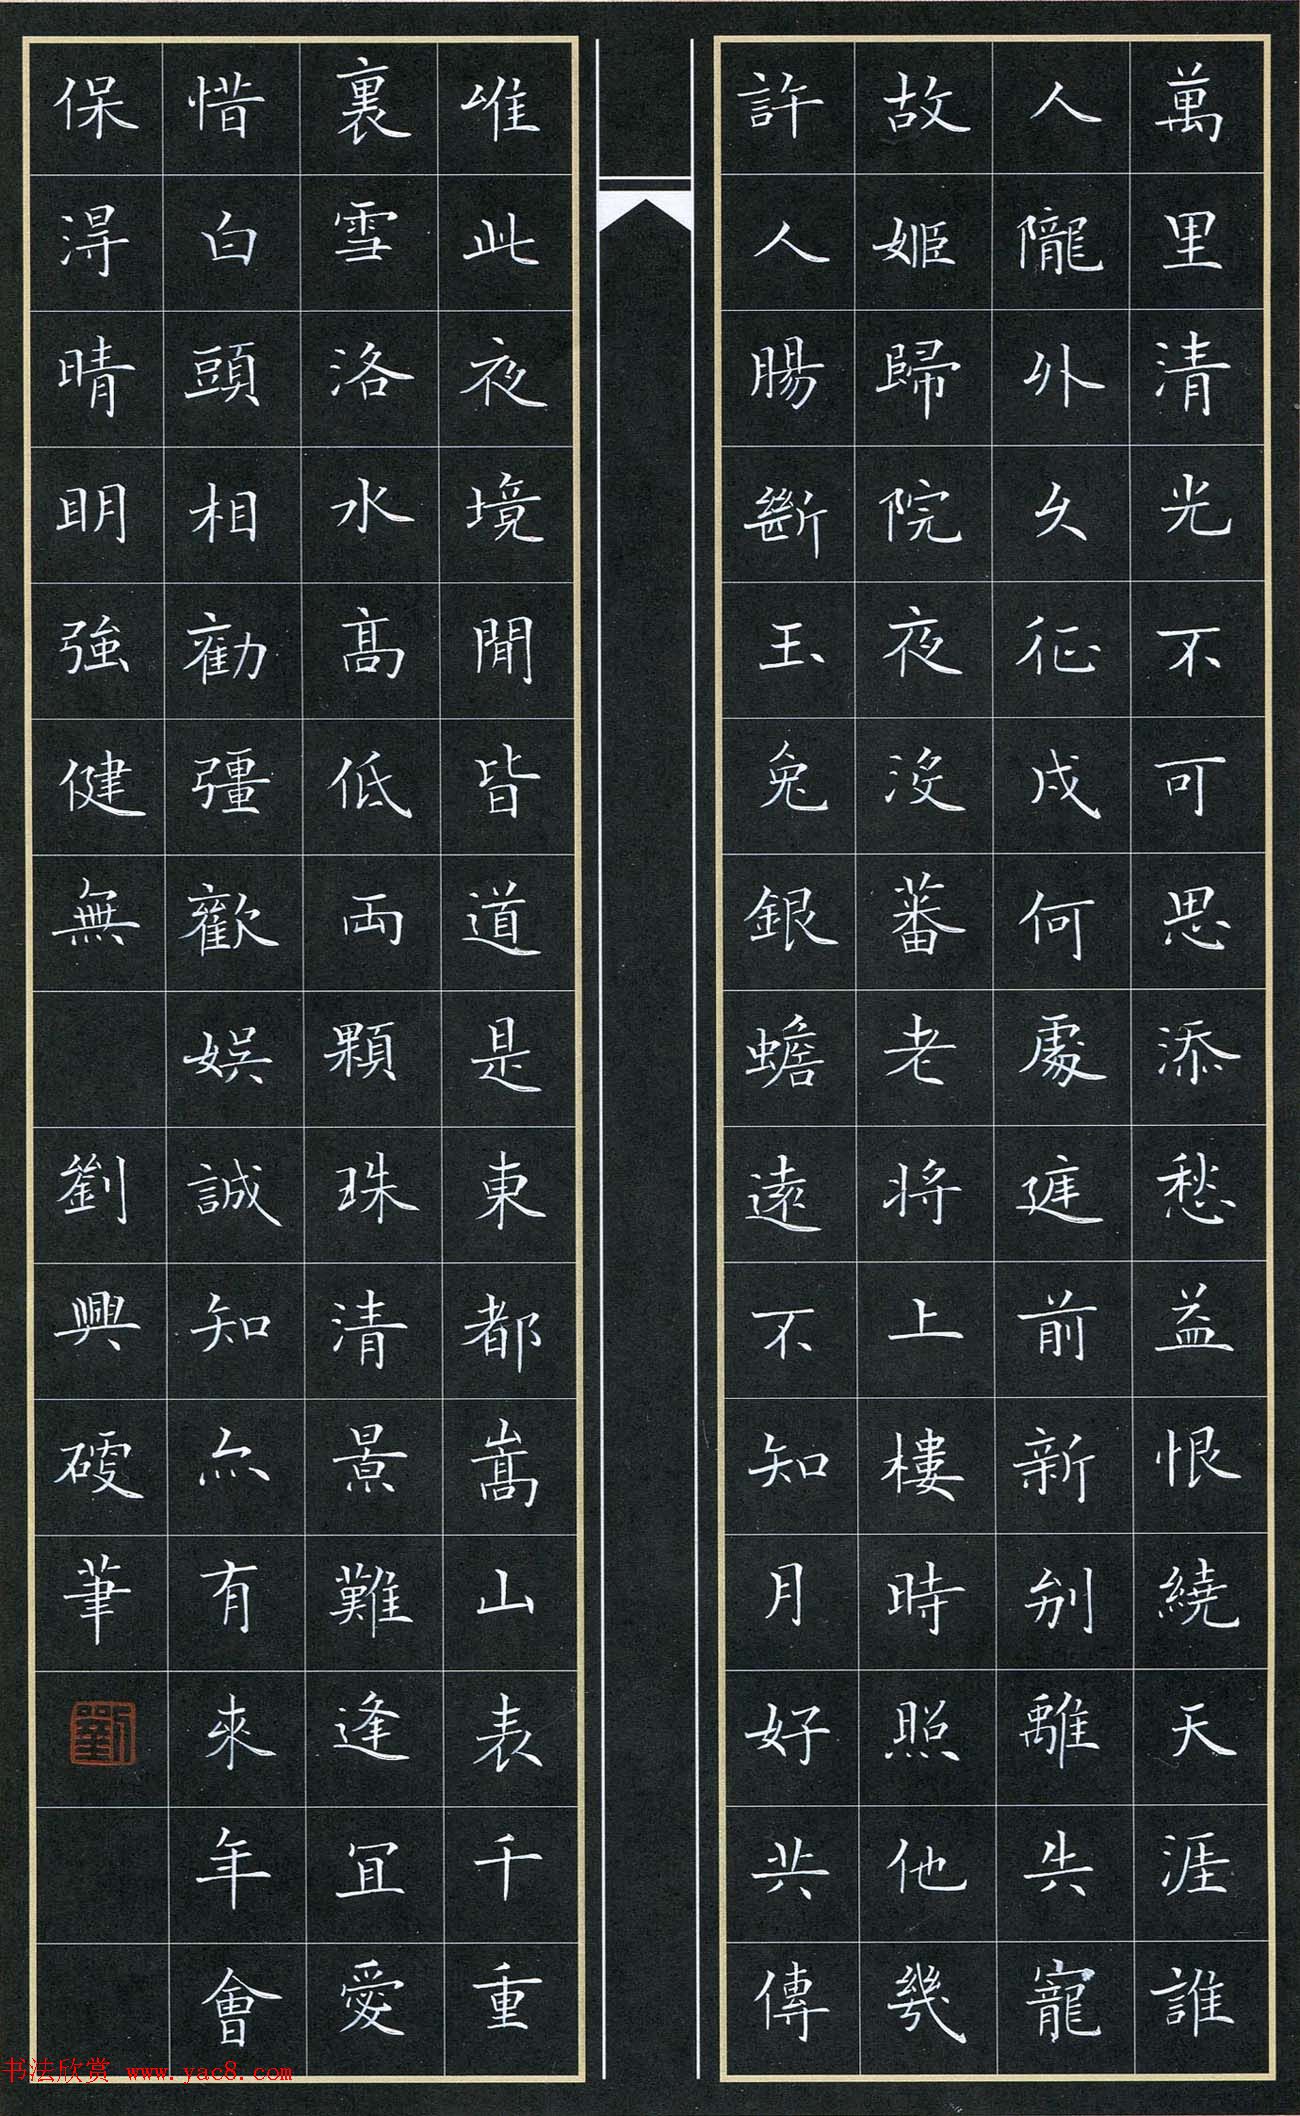 萬里清光不可思添愁益恨繞天涯誰
人隴外久征戍何處庭前新別離失寵
故姬歸院夜沒蕃老將上樓時照他幾
許人腸斷玉兔銀蟾遠不知月好共傳
唯此夜境閒皆道是東都嵩山表千重
裏雪洛水高低両顆珠清景難逢宜愛
惜白頭相勸彊歡娛誠知亦有來年會
保得晴明強健無
劉興礎筆
书法欣赏 www.yac8.com